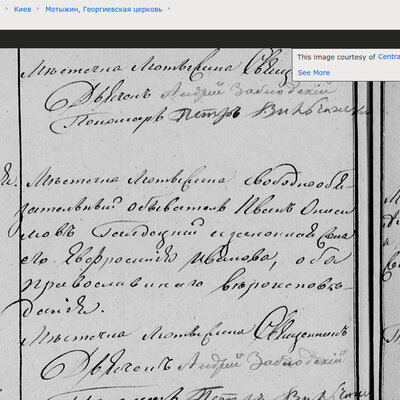 Киев › Мотыжин, Георгиевская церковь ›
This image courtesy of Centra
See More
Мѣстечка Мотыжина Священ
Дьячокъ Андрій Заблодскій
Пономаръ Петръ
Мѣстечка Мотыжина свободнообы
зательный обыватель Иванъ Ониси
мовъ и законная жена
его Евфросинія Иванова, оба
православнаго вѣроисповѣ-
данія.
Мѣстечка Мотыжина Священникъ
Дьячокъ Андрій Заблодскій
Петръ